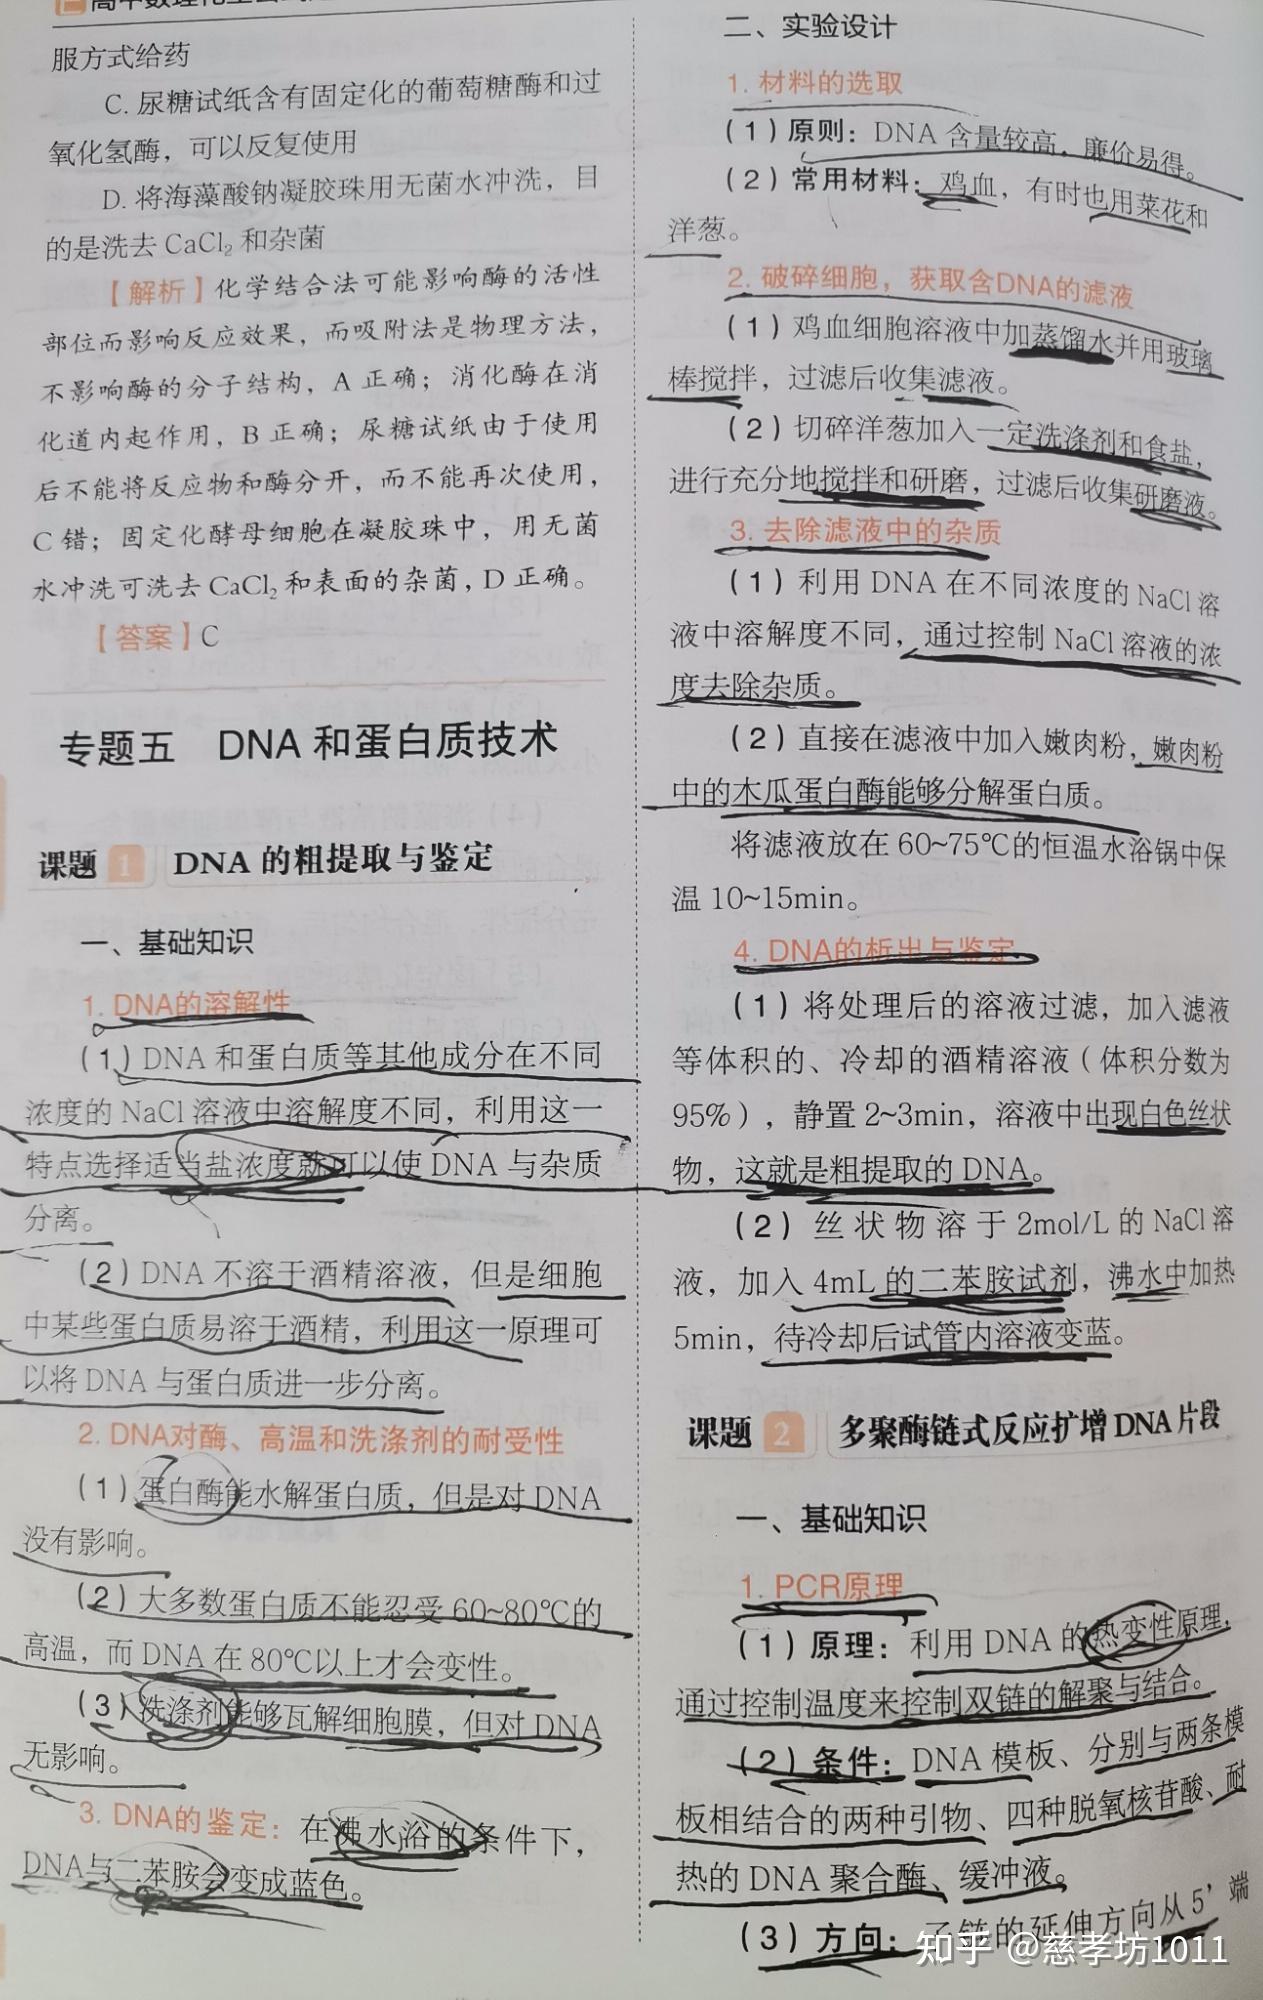 服方式给药
C. 尿糖试纸含有固定化的葡萄糖酶和过
氧化氢酶，可以反复使用
D. 将海藻酸钠凝胶珠用无菌水冲洗，目
的是洗去 CaCl₂ 和杂菌
【解析】化学结合法可能影响酶的活性
部位而影响反应效果，而吸附法是物理方法，
不影响酶的分子结构，A 正确；消化酶在消
化道内起作用，B 正确；尿糖试纸由于使用
后不能将反应物和酶分开，而不能再次使用，
C 错；固定化酵母细胞在凝胶珠中，用无菌
水冲洗可洗去 CaCl₂ 和表面的杂菌，D 正确。
【答案】C
专题五 DNA 和蛋白质技术
课题 1 DNA 的粗提取与鉴定
一、基础知识
1. DNA的溶解性
（1）DNA 和蛋白质等其他成分在不同
浓度的 NaCl 溶液中溶解度不同，利用这一
特点选择适当盐浓度就可以使 DNA 与杂质
分离。
（2）DNA 不溶于酒精溶液，但是细胞
中某些蛋白质易溶于酒精，利用这一原理可
以将 DNA 与蛋白质进一步分离。
2. DNA对酶、高温和洗涤剂的耐受性
（1）蛋白酶能水解蛋白质，但是对 DNA
没有影响。
（2）大多数蛋白质不能忍受 60~80℃的
高温，而 DNA 在 80℃以上才会变性。
（3）洗涤剂能够瓦解细胞膜，但对 DNA
无影响。
3. DNA的鉴定：在沸水浴的条件下，
DNA与二苯胺会变成蓝色。
二、实验设计
1. 材料的选取
（1）原则：DNA 含量较高，廉价易得。
（2）常用材料：鸡血，有时也用菜花和
洋葱。
2. 破碎细胞，获取含DNA的滤液
（1）鸡血细胞溶液中加蒸馏水并用玻璃
棒搅拌，过滤后收集滤液。
（2）切碎洋葱加入一定洗涤剂和食盐，
进行充分地搅拌和研磨，过滤后收集研磨液。
3. 去除滤液中的杂质
（1）利用 DNA 在不同浓度的 NaCl 溶
液中溶解度不同，通过控制 NaCl 溶液的浓
度去除杂质。
（2）直接在滤液中加入嫩肉粉，嫩肉粉
中的木瓜蛋白酶能够分解蛋白质。
将滤液放在 60~75℃的恒温水浴锅中保
温 10~15min。
4. DNA的析出与鉴定
（1）将处理后的溶液过滤，加入滤液
等体积的、冷却的酒精溶液（体积分数为
95%），静置 2~3min，溶液中出现白色丝状
物，这就是粗提取的 DNA。
（2）丝状物溶于 2mol/L 的 NaCl 溶
液，加入 4mL 的二苯胺试剂，沸水中加热
5min，待冷却后试管内溶液变蓝。
课题 2 多聚酶链式反应扩增 DNA 片段
一、基础知识
1. PCR原理
（1）原理：利用 DNA 的热变性原理，
通过控制温度来控制双链的解聚与结合。
（2）条件：DNA 模板、分别与两条模
板相结合的两种引物、四种脱氧核苷酸、耐
热的 DNA 聚合酶、缓冲液。
（3）方向：子链的延伸方向从 5′ 端
知乎 @慈孝坊1011